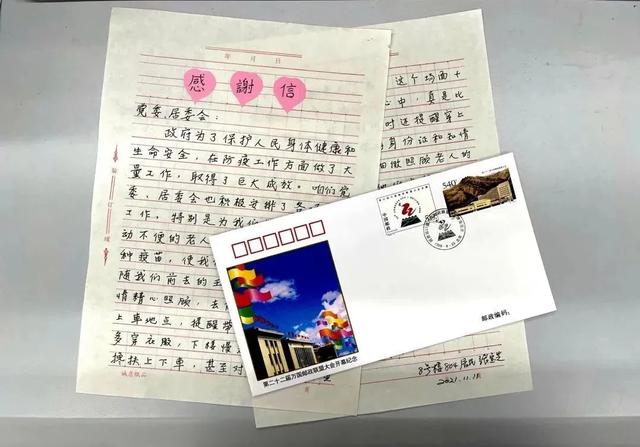 年 月 日
感謝信
党委、居委会：
政府为了保护人民身体健康和
生命安全，在防疫工作方面做了大
量工作，取得了巨大成效。咱们党
委、居委会也积极安排了
工作，特别是为我
动不便的老人
种疫苗，使我
随我们前去的
情精心照顾，
上车地点，提醒
多穿衣服，下楼慢
搀扶上下车，甚至对
装订线
诚意纸品
这个场面十
心中，真是比
时还提醒穿上
身份证和知情
细微照顾老人的
8号楼804居民
2021.11.18
中国邮政
540
邮政编码：
第二十二届万国邮政联盟大会开幕纪念